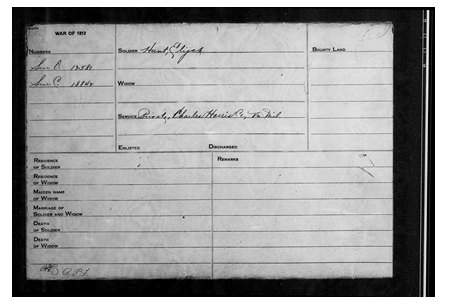 WAR OF 1812
NUMBERS
SOLDIER Hunt, Elijah
BOUNTY LAND
Sur. O.
Sur. C.
WIDOW
SERVICE Private, Charles Harris Co., Va Mil
ENLISTED DISCHARGED
RESIDENCE OF SOLDIER
REMARKS
RESIDENCE OF WIDOW
MAIDEN NAME OF WIDOW
MARRIAGE OF SOLDIER AND WIDOW
DEATH OF SOLDIER
DEATH OF WIDOW